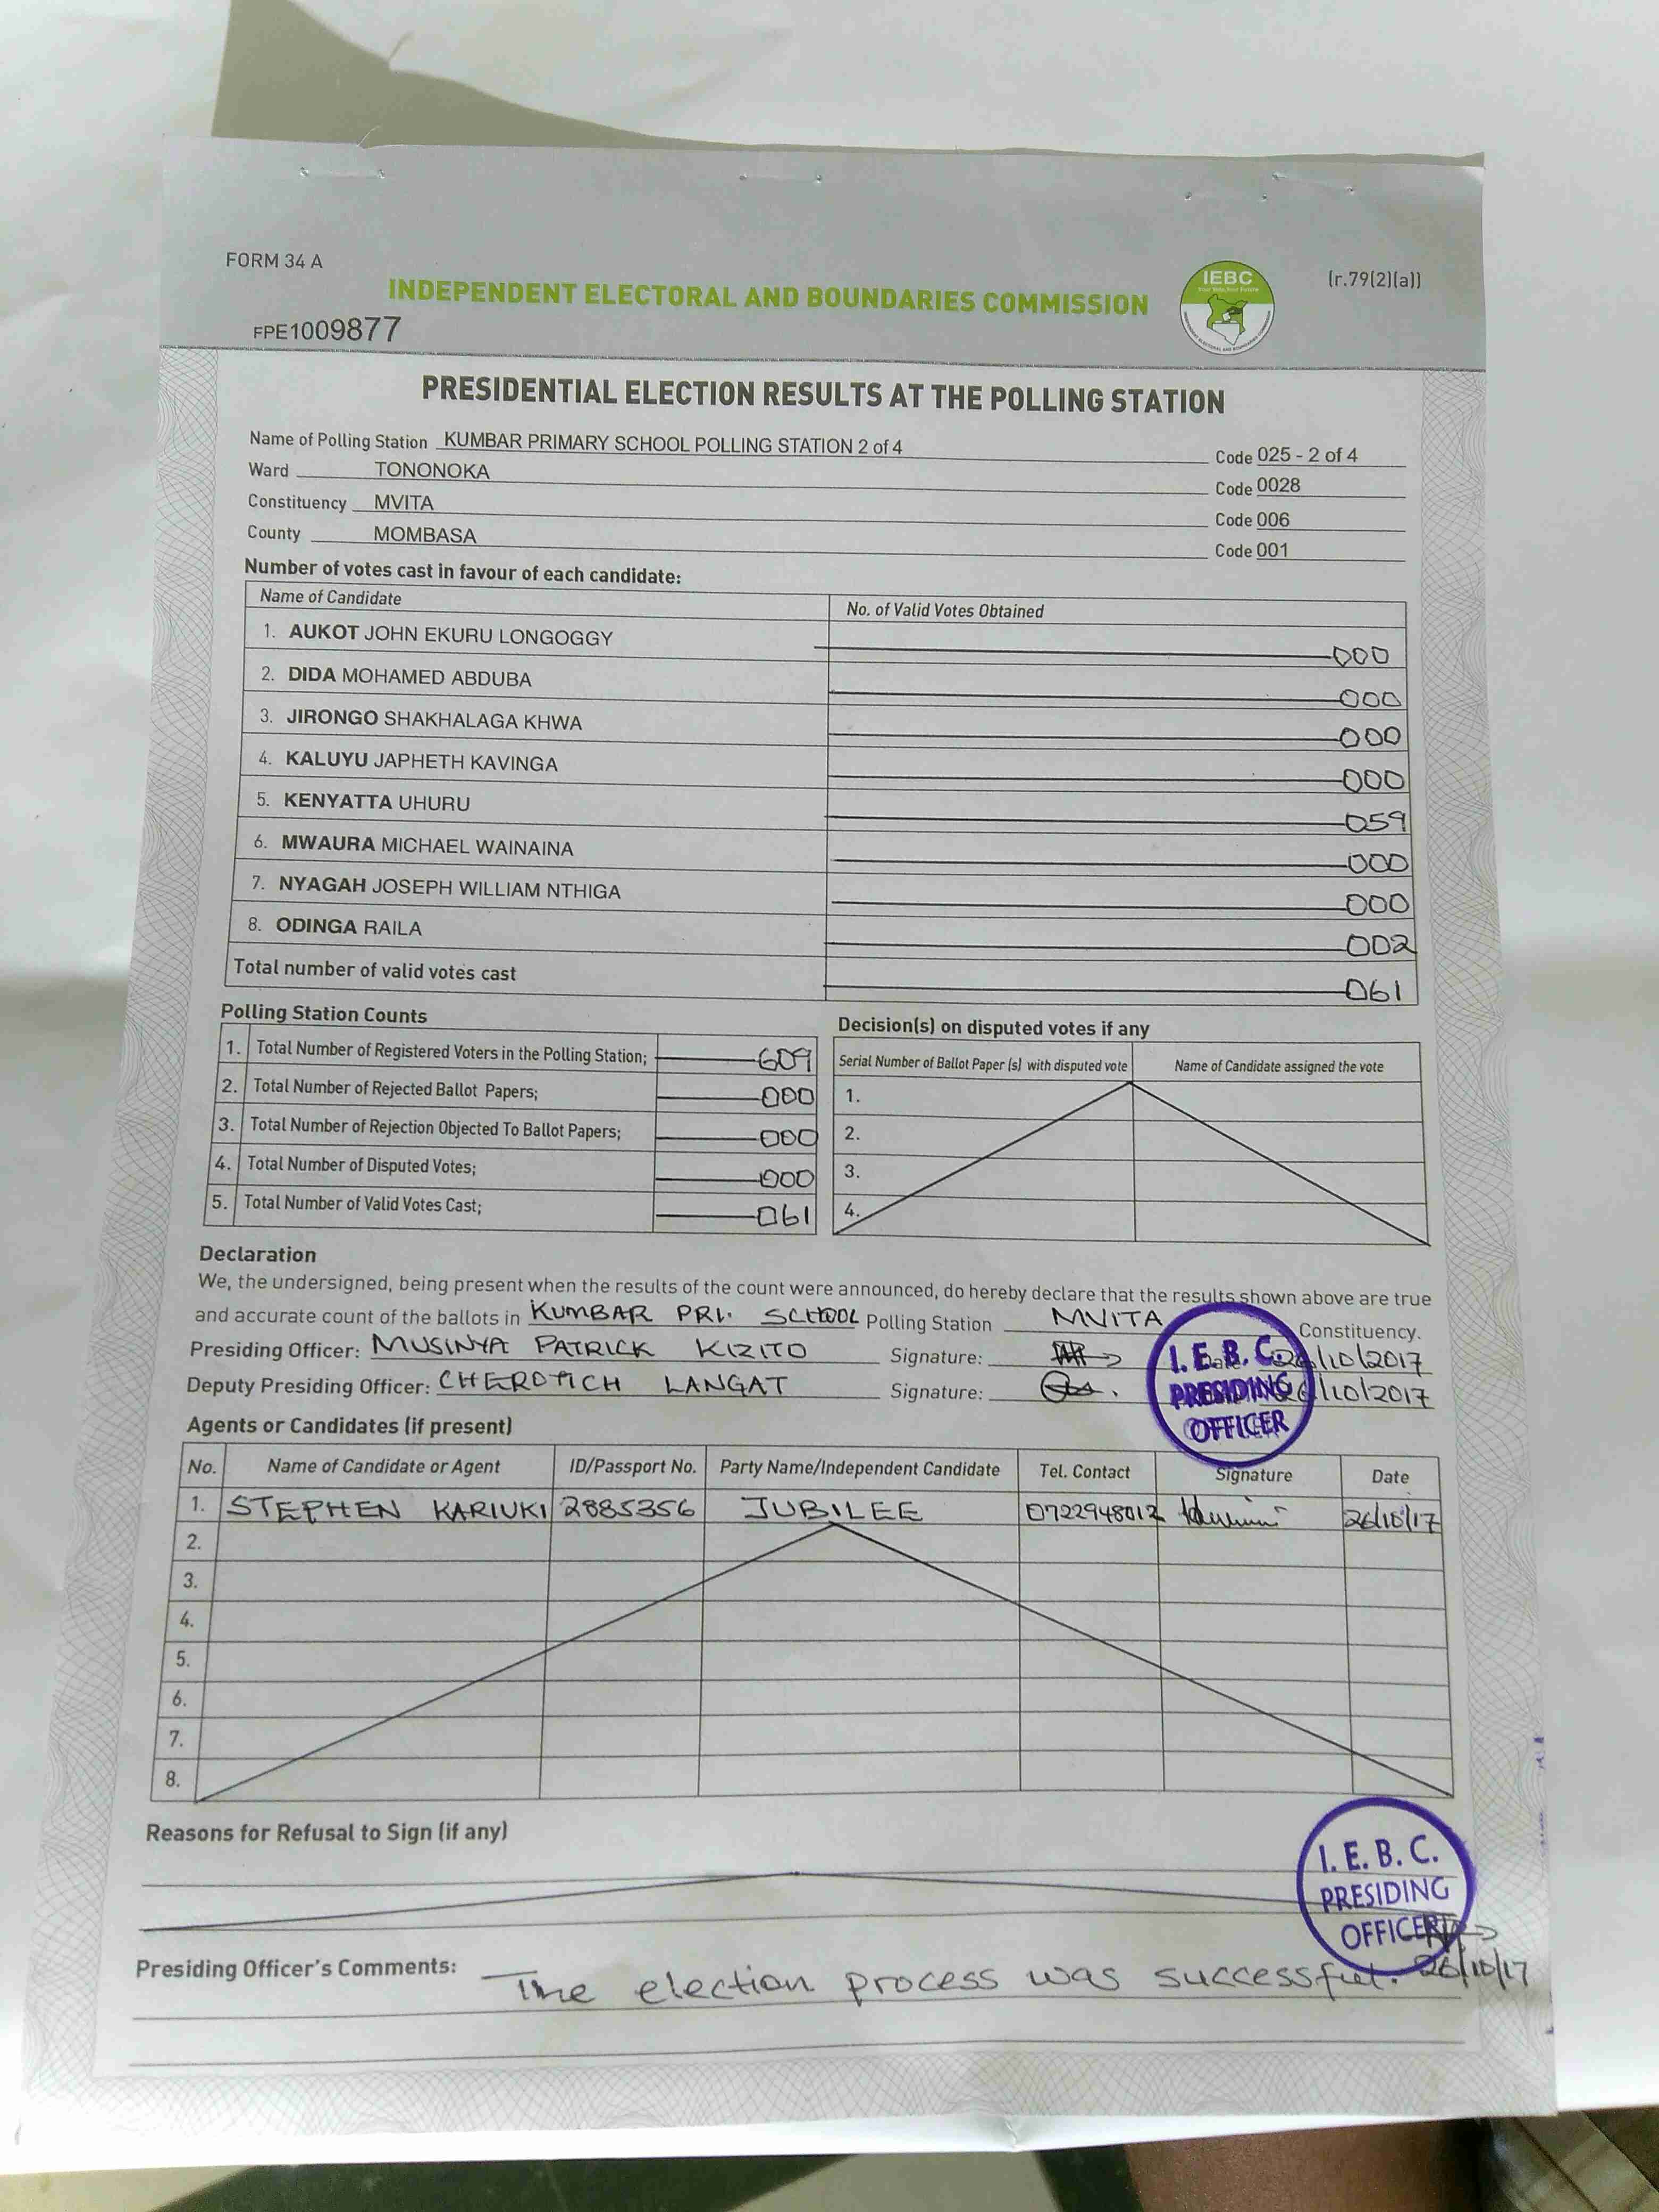 FORM 34 A
(r.79(2)(a))
INDEPENDENT ELECTORAL AND BOUNDARIES COMMISSION
IEBC
FPE1009877
PRESIDENTIAL ELECTION RESULTS AT THE POLLING STATION
Name of Polling Station KUMBAR PRIMARY SCHOOL POLLING STATION 2 of 4 Code 025 - 2 of 4
Ward TONONOKA Code 0028
Constituency MVITA Code 006
County MOMBASA Code 001
Number of votes cast in favour of each candidate:
Name of Candidate No. of Valid Votes Obtained
1. AUKOT JOHN EKURU LONGOGGY 000
2. DIDA MOHAMED ABDUBA 000
3. JIRONGO SHAKHALAGA KHWA 000
4. KALUYU JAPHETH KAVINGA 000
5. KENYATTA UHURU 059
6. MWAURA MICHAEL WAINAINA 000
7. NYAGAH JOSEPH WILLIAM NTHIGA 000
8. ODINGA RAILA 002
Total number of valid votes cast 061
Polling Station Counts
1. Total Number of Registered Voters in the Polling Station; 609
2. Total Number of Rejected Ballot Papers; 000
3. Total Number of Rejection Objected To Ballot Papers; 000
4. Total Number of Disputed Votes; 000
5. Total Number of Valid Votes Cast; 061
Decision(s) on disputed votes if any
Serial Number of Ballot Paper (s) with disputed vote Name of Candidate assigned the vote
1.
2.
3.
4.
Declaration
We, the undersigned, being present when the results of the count were announced, do hereby declare that the results shown above are true
and accurate count of the ballots in KUMBAR PRI. SCHOOL Polling Station MVITA Constituency.
Presiding Officer: MUSINYA PATRICK KIZITO Signature: Date 26/10/2017
Deputy Presiding Officer: CHEROTICH LANGAT Signature: 26/10/2017
I.E.B.C.
PRESIDING
OFFICER
Agents or Candidates (if present)
No. Name of Candidate or Agent ID/Passport No. Party Name/Independent Candidate Tel. Contact Signature Date
1. STEPHEN KARIUKI 2885356 JUBILEE 0722948012 26/10/17
2.
3.
4.
5.
6.
7.
8.
Reasons for Refusal to Sign (if any)
I. E. B. C.
PRESIDING
OFFICER
Presiding Officer's Comments: The election process was successful. 26/10/17